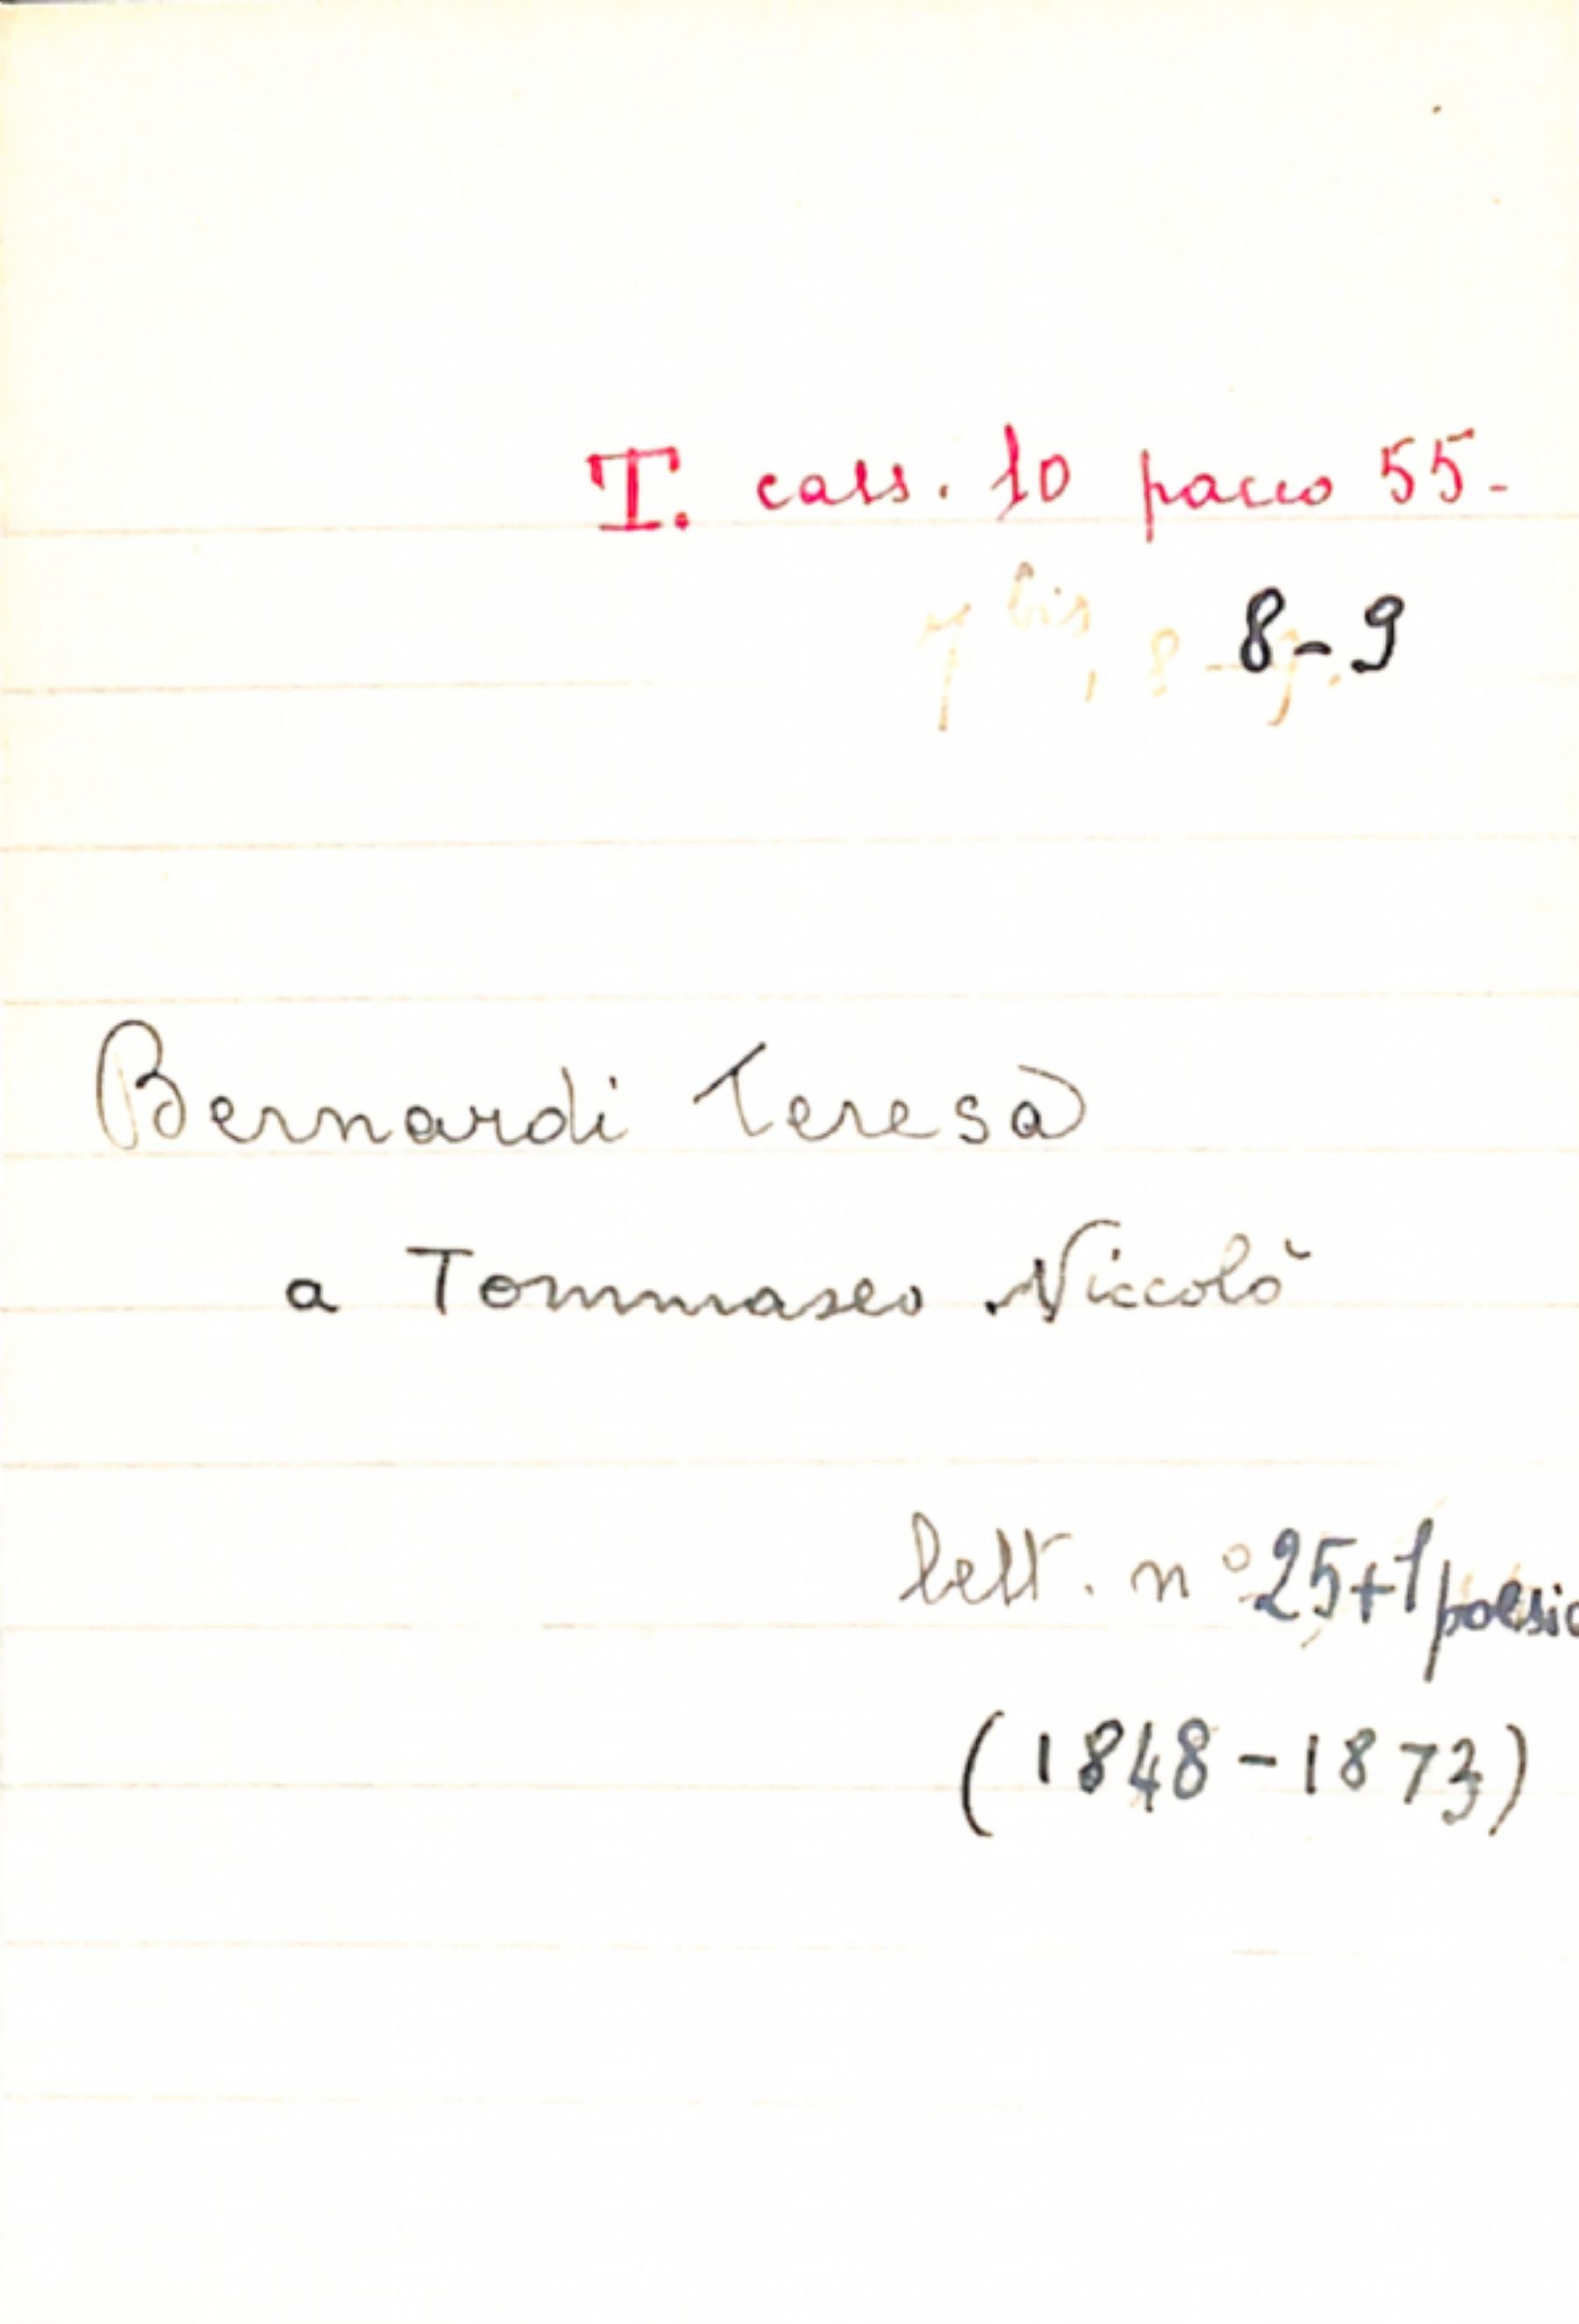 T. cass. 10 pacco 55-
7 bis, 8-9. 8-9
Bernardi Teresa
a Tommaseo Niccolò
lett. n° 25+1 poesia
(1848-1873)